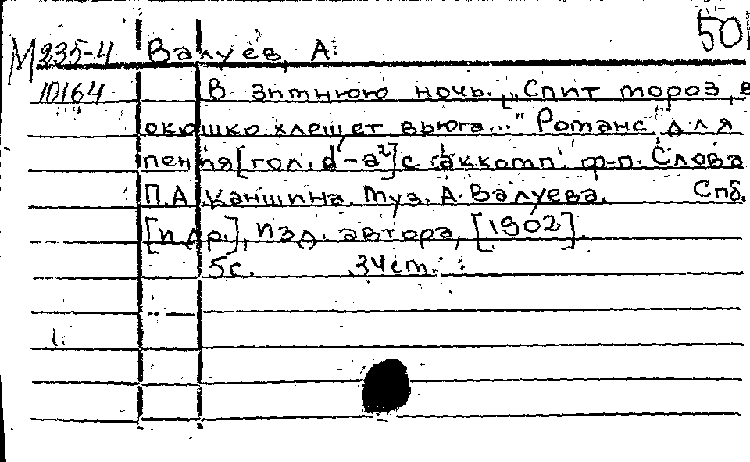 501
М 235-4 Валуев, А.
10164 В зимнюю ночь. „Спит мороз, в
окошко хлещет вьюга..." Романс для
пения [гол. d'-a²] с аккомп. ф-п. Слова
П.А. Каншина. Муз. А. Валуева. Спб.
[п др.], изд. автора, [1902].
5с. 34 cm.